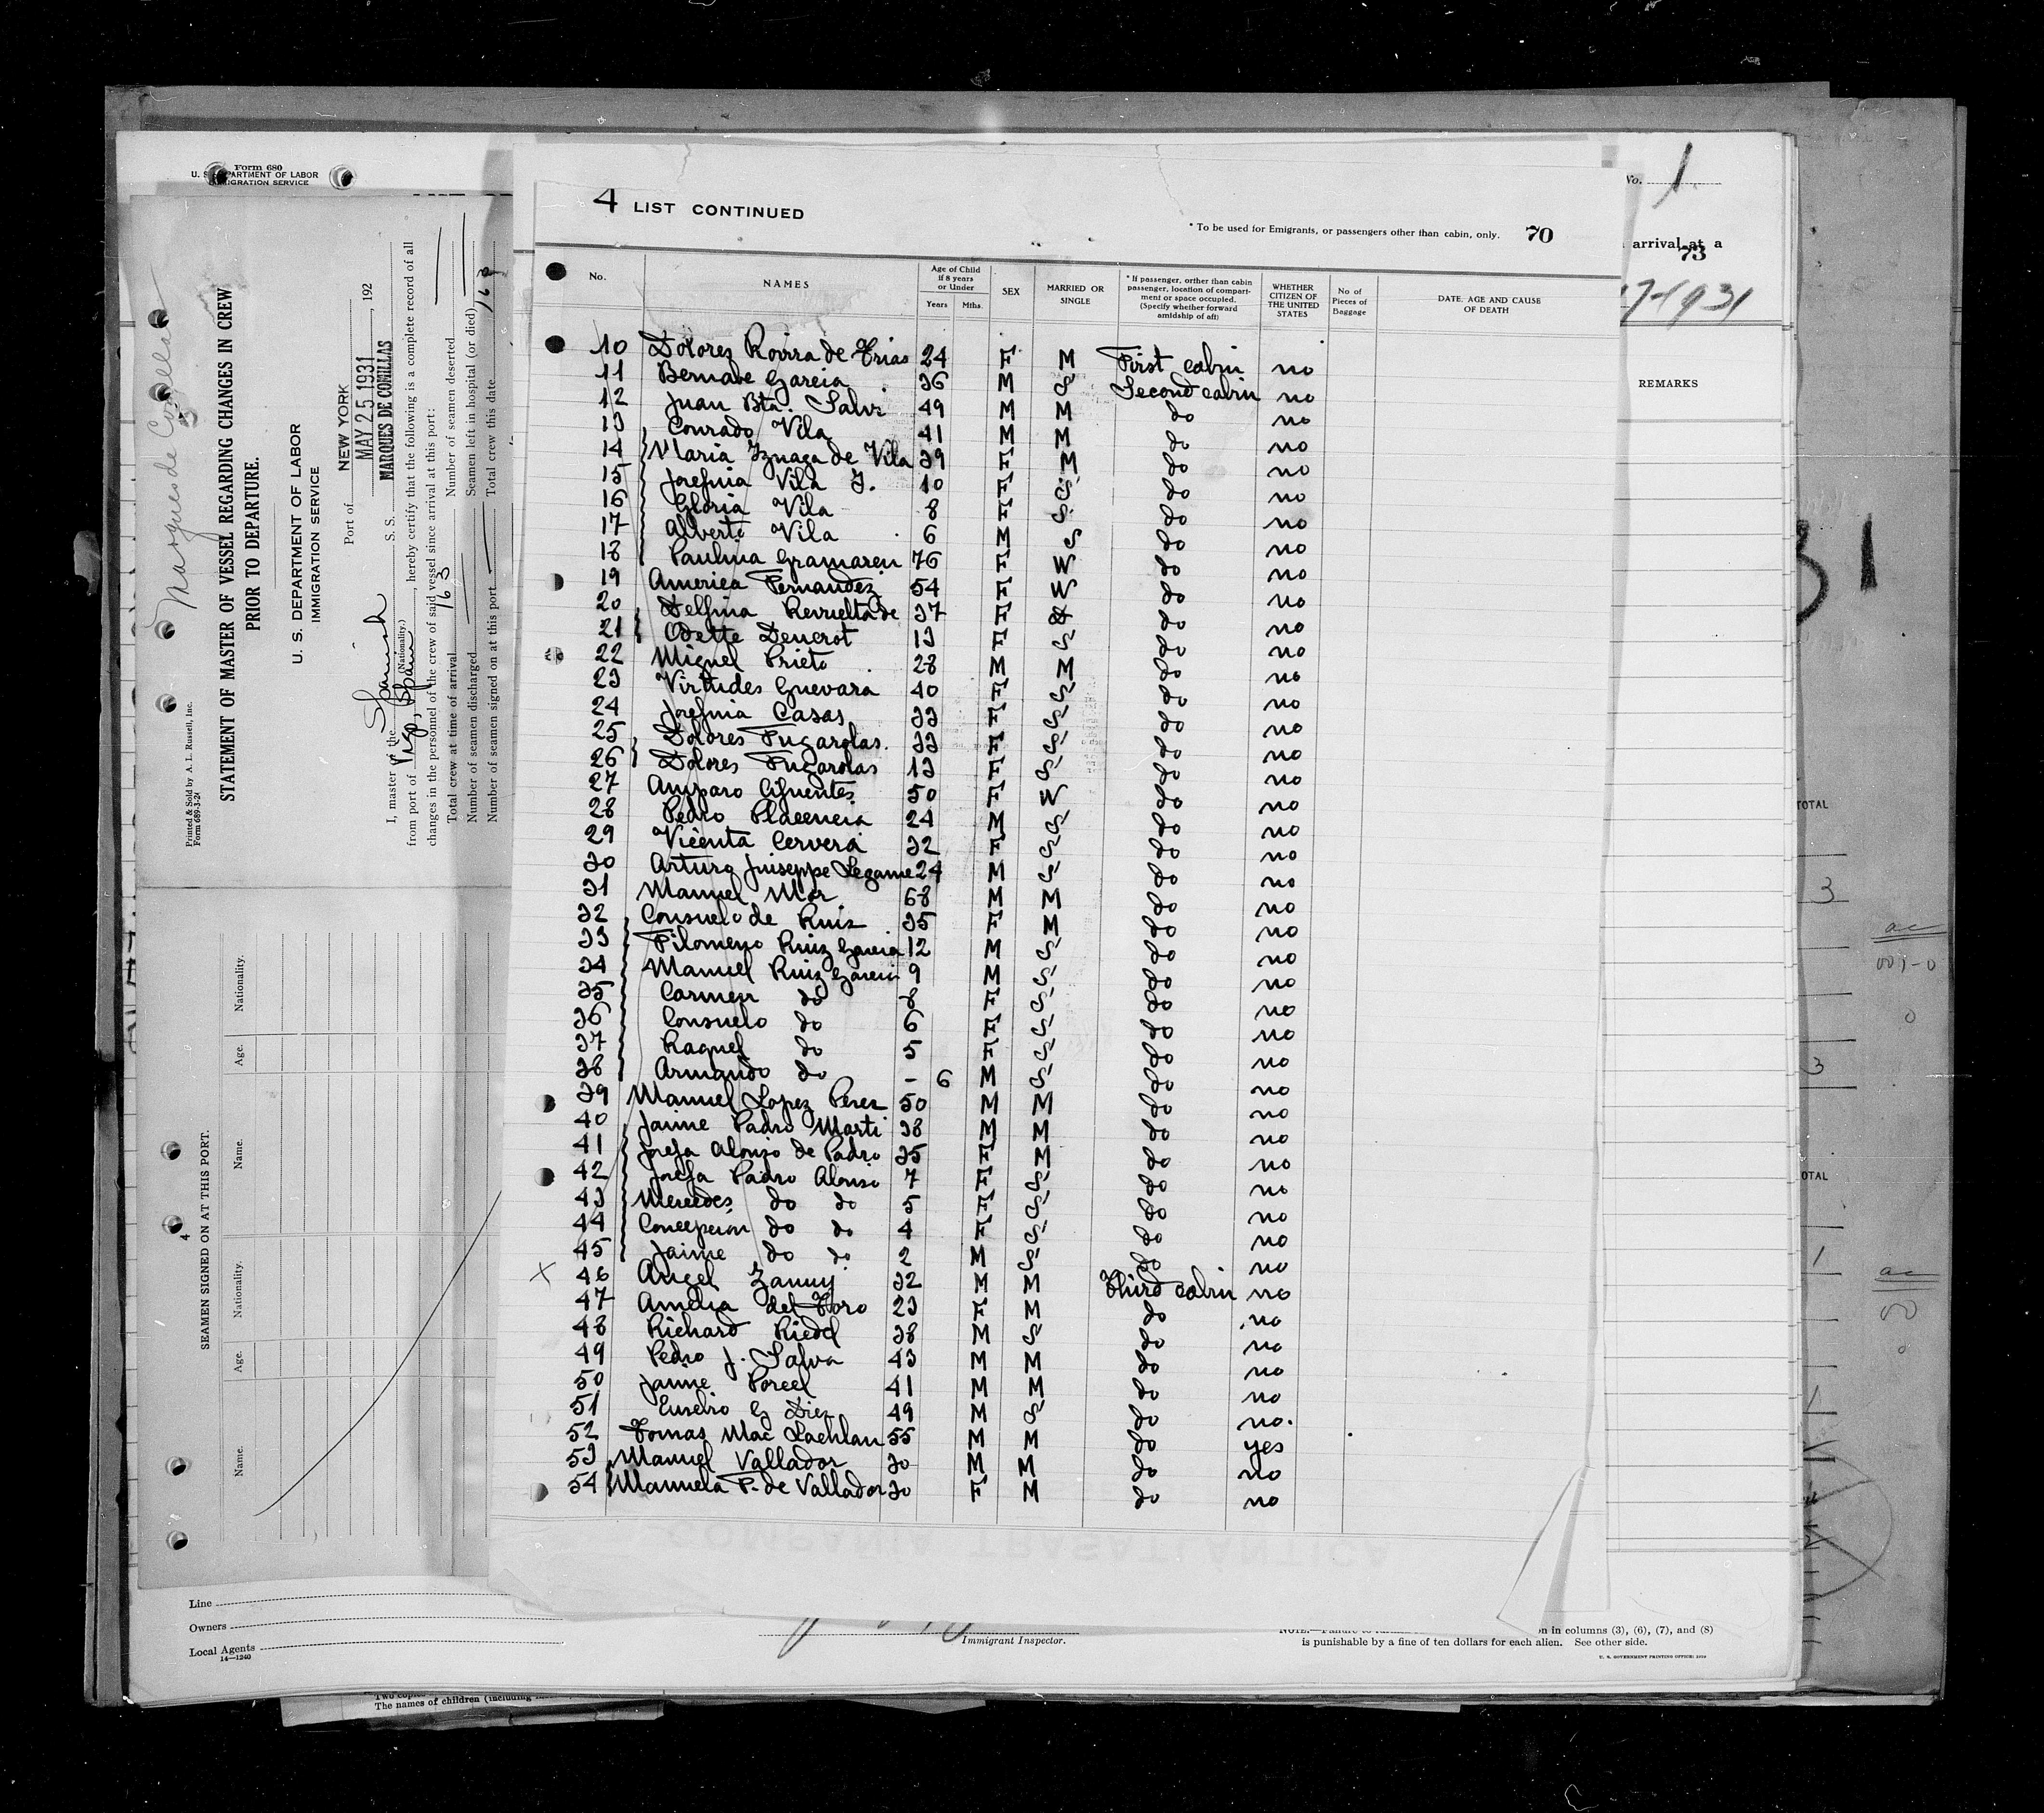 Form 680
U. S. DEPARTMENT OF LABOR
IMMIGRATION SERVICE
Marques de Comillas
Printed & Sold by A. L. Russell, Inc.
STATEMENT OF MASTER OF VESSEL REGARDING CHANGES IN CREW
PRIOR TO DEPARTURE.
U. S. DEPARTMENT OF LABOR
IMMIGRATION SERVICE
Port of NEW YORK
MAY 25 1931 , 192
I, master of the Spanish S. S. MARQUES DE COMILLAS
(Nationality.)
from port of Vigo, Spain , hereby certify that the following is a complete record of all
changes in the personnel of the crew of said vessel since arrival at this port:
Total crew at time of arrival 163 Number of seamen deserted
Number of seamen discharged Seamen left in hospital (or died)
Number of seamen signed on at this port Total crew this date
4
SEAMEN SIGNED ON AT THIS PORT.
Name. Age. Nationality. Name. Age. Nationality.
4 LIST CONTINUED
* To be used for Emigrants, or passengers other than cabin, only. 70
No. NAMES Age of Child if 8 years or Under Years Mths. SEX MARRIED OR SINGLE * If passenger, orther than cabin passenger, location of compartment or space occupied. (Specify whether forward amidship of aft) WHETHER CITIZEN OF THE UNITED STATES No of Pieces of Baggage DATE. AGE AND CAUSE OF DEATH
10 Dolores Rovira de Trias 24 F M First cabin no
11 Bernabe Garcia 36 M S Second cabin no
12 Juan Bta. Salvi 49 M M do no
13 Conrado Vila 41 M M do no
14 Maria Iznaga de Vila 39 F M do no
15 Josefina Vila I. 10 F S do no
16 Gloria Vila 8 F S do no
17 Alberto Vila 6 M S do no
18 Paulina Gramaren 76 F W do no
19 America Fernandez 54 F W do no
20 Delfina Revuelta de 37 F do no
21 Odette Denerot 13 F S do no
22 Miguel Prieto 28 M M do no
23 Virtudes Guevara 40 F S do no
24 Josefina Casas 33 F S do no
25 Dolores Fugarolas. 33 F S do no
26 Dolores Fugarolas 13 F S do no
27 Amparo Cifuentes 50 F W do no
28 Pedro Placencia 24 M S do no
29 Vicenta Cervera 32 F S do no
30 Arturo Juiseppe Legame 24 M S do no
31 Manuel Mor 68 M M do no
32 Consuelo de Ruiz 35 F M do no
33 Filomeno Ruiz Garcia 12 M S do no
34 Manuel Ruiz Garcia 9 M S do no
35 Carmen do 8 F S do no
36 Consuelo do 6 F S do no
37 Raquel do 5 F S do no
38 Armando do - 6 M S do no
39 Manuel Lopez Perez 50 M M do no
40 Jaime Padro Marti 38 M M do no
41 Josefa Alonso de Padro 35 F M do no
42 Josefa Padro Alonso 7 F S do no
43 Mercedes do do 5 F S do no
44 Concepcion do do 4 F S do no
45 Jaime do do 2 M S do no
X 46 Angel Zanny 32 M M Third cabin no
47 Amelia del Toro 23 F M do no
48 Richard Riedel 38 M S do no
49 Pedro J. Salva 43 M M do no
50 Jaime Porcel 41 M M do no
51 Eusebio G Diez 49 M S do no.
52 Tomas Mac Lachlan 55 M M do yes
53 Manuel Vallador 30 M M do no
54 Manuela P. de Vallador 30 F M do no
COMPAÑIA TRASATLANTICA
No. 1
arrival at a
73
REMARKS
TOTAL
3
3
TOTAL
1
1
31
Line
Owners
Local Agents
14—1240
Immigrant Inspector.
n in columns (3), (6), (7), and (8)
is punishable by a fine of ten dollars for each alien. See other side.
The names of children (including